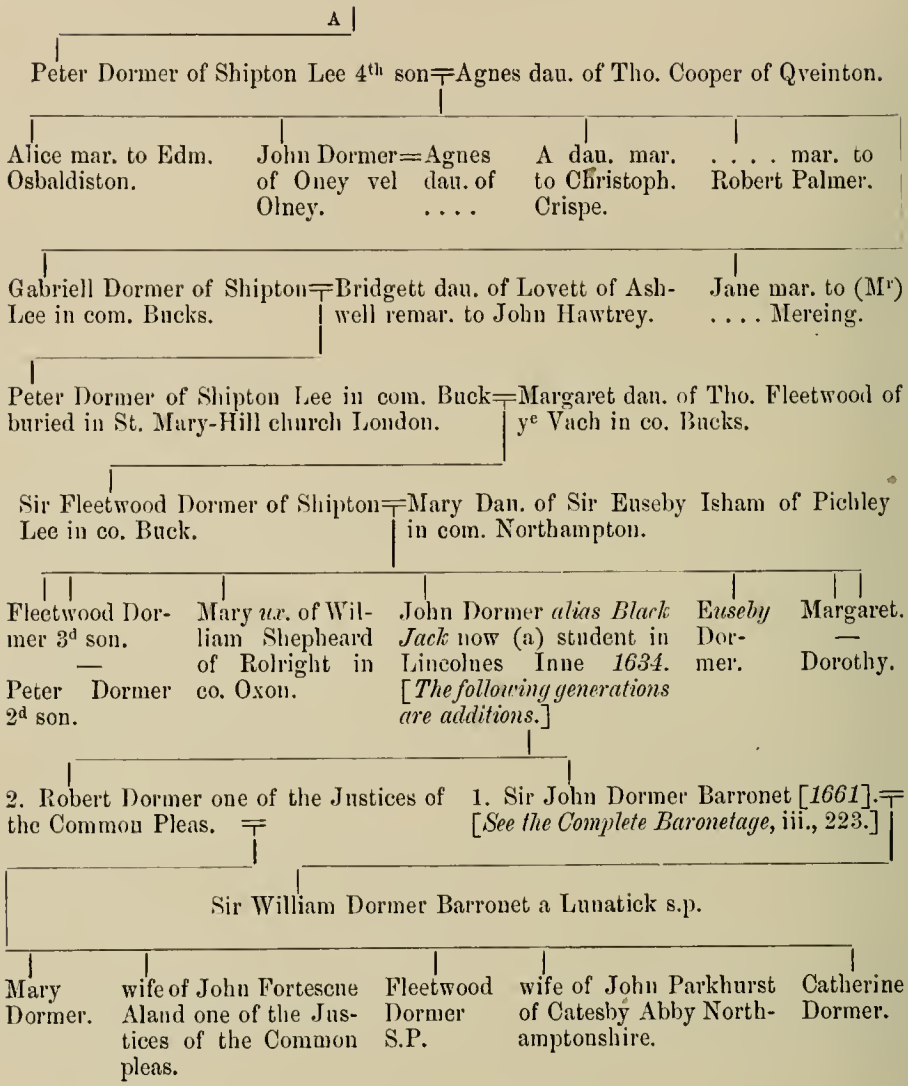 A
Peter Dormer of Shipton Lee 4th son=Agnes dau. of Tho. Cooper of Qveinton.
Alice mar. to Edm.
Osbaldiston.
John Dormer=Agnes
of Oney vel dau. of
Olney. . . . .
A dau. mar.
to Christoph.
Crispe.
. . . . mar. to
Robert Palmer.
Gabriell Dormer of Shipton=Bridgett dau. of Lovett of Ash-
Lee in com. Bucks. well remar. to John Hawtrey.
Jane mar. to (Mr)
. . . . Mereing.
Peter Dormer of Shipton Lee in com. Buck=Margaret dau. of Tho. Fleetwood of
buried in St. Mary-Hill church London. ye Vach in co. Bucks.
Sir Fleetwood Dormer of Shipton=Mary Dau. of Sir Euseby Isham of Pichley
Lee in co. Buck. in com. Northampton.
Fleetwood Dor-
mer 3d son.
—
Peter Dormer
2d son.
Mary ux. of Wil-
liam Shepheard
of Rolright in
co. Oxon.
John Dormer alias Black
Jack now (a) student in
Lincolnes Inne 1634.
[The following generations
are additions.]
Euseby
Dor-
mer.
Margaret.
—
Dorothy.
2. Robert Dormer one of the Justices of
the Common Pleas. =
1. Sir John Dormer Barronet [1661].=
[See the Complete Baronetage, iii., 223.]
Sir William Dormer Barronet a Lunatick s.p.
Mary
Dormer.
wife of John Fortescue
Aland one of the Jus-
tices of the Common
pleas.
Fleetwood
Dormer
S.P.
wife of John Parkhurst
of Catesby Abby North-
amptonshire.
Catherine
Dormer.